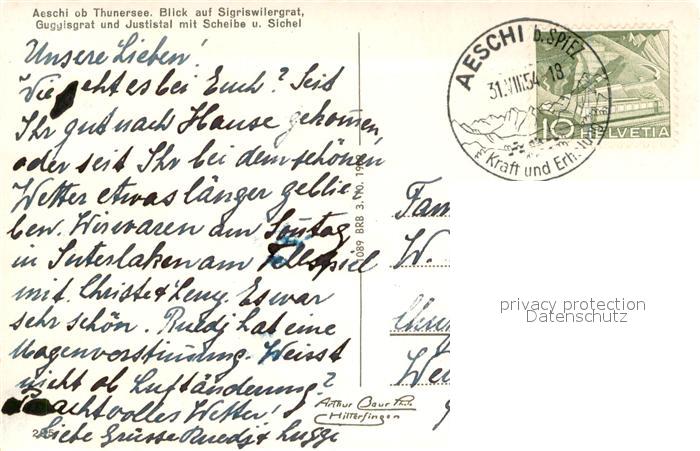 Aeschi ob Thunersee. Blick auf Sigriswilergrat,
Guggisgrat und Justistal mit Scheibe u. Sichel
Unsere Lieben!
Wie geht es bei Euch? Seit
Ihr gut nach Hause gekommen,
oder seit Ihr bei dem schönen
Wetter etwas länger geblie
ben. Wir waren am Sonntag
in Interlaken am Tellspiel
mit Christe & Leny. Es war
sehr schön. Ruedj hat eine
Magenverstimmung. Weisst
nicht ob Luftänderung?
Prachtvolles Wetter!
Liebe Grüsse Ruedj &
1089 BRB 3. 10.
AESCHI b. SPIEZ
31.VIII.54 18
Kraft und Erh
10 HELVETIA
Fam
W.
We
Arthur Baur
Hilterfingen
privacy protection
Datenschutz